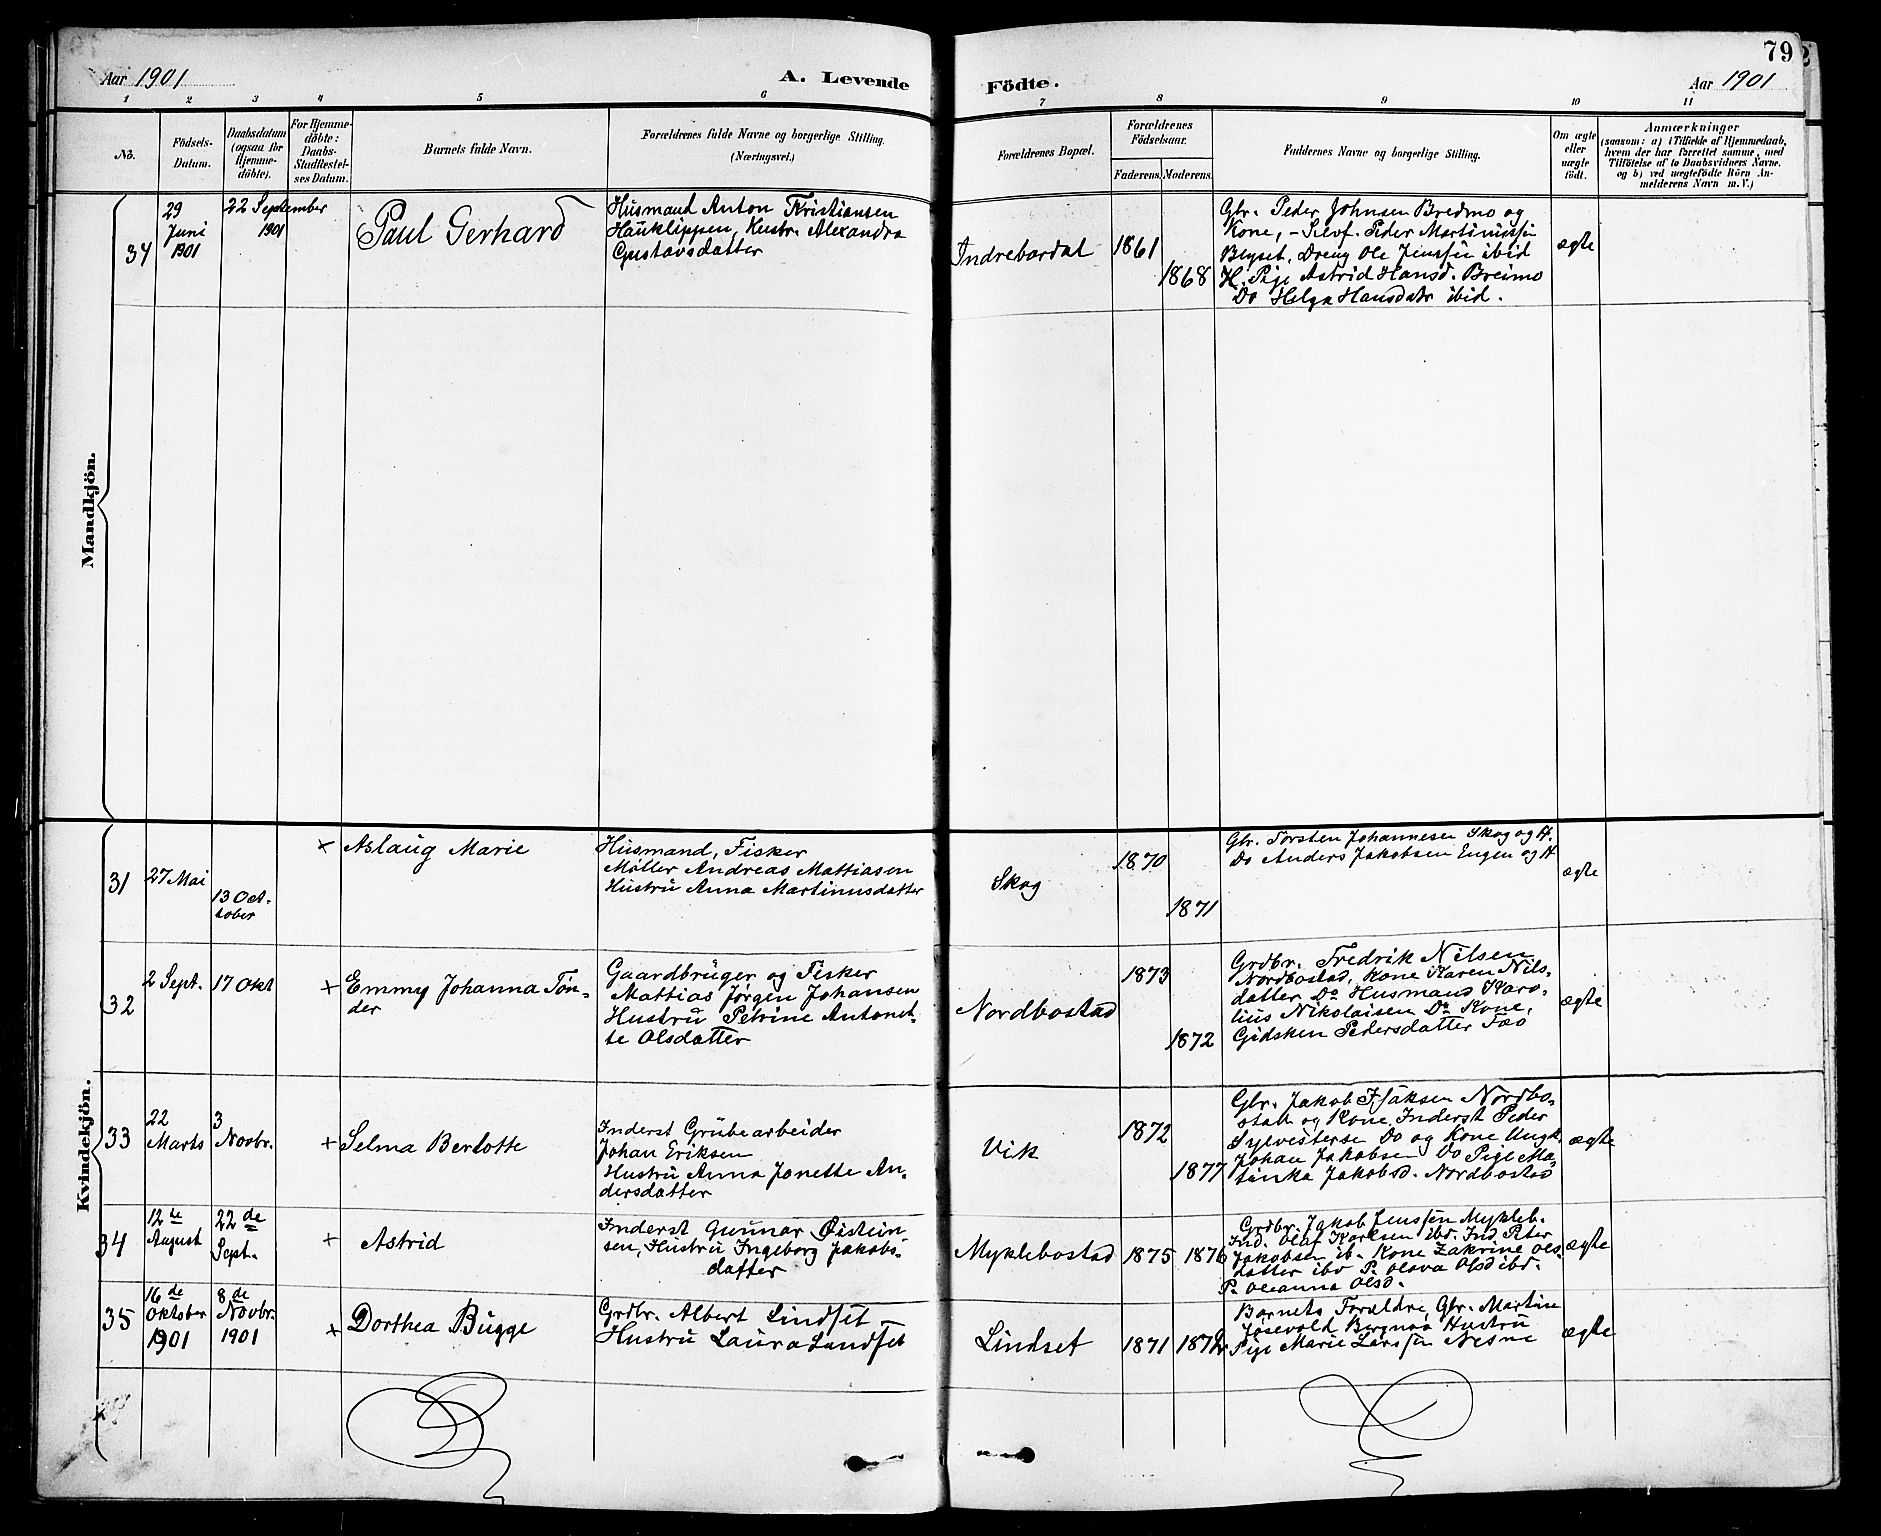 79
Aar 1901
A. Levende
Födte.
Aar 1901
1 2 3 4 5 6 7 8 9 10 11
No.
Födsels-
Datum.
Daabsdatum
(ogsaa for
Hjemme-
döbte).
For Hjemme-
döbte:
Daabs-
Stadfæstel-
ses Datum.
Barnets fulde Navn.
Forældrenes fulde Navne og borgerlige Stilling.
(Næringsvei.)
Forældrenes Bopæl.
Forældrenes
Födselsaar.
Faderens. Moderens.
Faddernes Navne og borgerlige Stilling.
Om ægte
eller
uægte
födt.
Anmærkninger
(saasom: a) i Tilfælde af Hjemmedaab,
hvem der har forrettet samme, med
Tilföielse af to Daabsvidners Navne,
og b) ved uægtefödte Börn An-
melderens Navn m. V.)
Mandkjön.
34
29
Juni
1901
22 September
1901
Paul Gerhard
Husmand Anton Kristiansen
Hauklippen, Hustr. Alexandra
Gustavsdatter
Indrebardal
1861
1868
Gbr. Peder Johnsen Bredmo og
Kone, - Selvf. Peder Martinussen
Blyset. Dreng Ole Jenssen ibid
H. Pige Astrid Hansd. Breimo
Do Helga Hansdatr ibid.
ægte
Kvindekjön.
31
27 Mai
13 Oct-
tober
× Aslaug Marie
Husmand, Fisker
Møller Andreas Mattiasen
Hustru Anna Martinusdatter
Skog
1870
1871
Gbr. Torsten Johannesen Skog og H.
Do Anders Jakobsen Engen og H
ægte
32
2 Sept.
17 Okt
× Emmy Johanna Tøn-
der
Gaardbruger og Fisker
Mattias Jørgen Johansen
Hustru Petrine Antonet-
te Olsdatter
Nordbostad
1873
1872
Grdbr. Fredrik Nilsen
Nordbostad, Kone Karen Nils-
datter Do Husmand Karo-
lius Nikolaisen Do Kone,
Gidsken Pedersdatter Fao
ægte
33
22
Marts
3
Novbr.
× Selma Berlotte
Inderst Grubearbeider
Johan Eriksen
Hustru Anna Jonette An-
dersdatter
Vik
1872
1877
Gbr. Jakob Isaksen Nordbo-
stad og Kone Inderst Peder
Sylvesterse Do og Kone Ungk.
Johan Jakobsen Do Pige Ma-
tinka Jakobsd. Nordbostad
ægte
34
12te
August
22de
Sept.
× Astrid
Inderst Gunnar Øistein-
sen, Hustru Ingeborg Jakobs-
datter
Myklebostad
1875 1876
Grdbr. Jakob Jenssen Mykleb.
Ind. Olaf Karlsen ibd. Ind Peter
Jakobsen ib. Kone Zakrine Ols-
datter ibd P. Olava Olsd ibd.
P. Oleanna Olsd.
ægte
35
16de
Oktober
1901
8de
Novbr.
1901
× Dorthea Bugge
Grdbr. Albert Lindset
Hustru Laura Lindset
Lindset
1871 1872
Barnets Forældre, Gbr. Martin
Jøsevold Bergnaa Hustru
Pige Marie Larssen Nesne
ægte